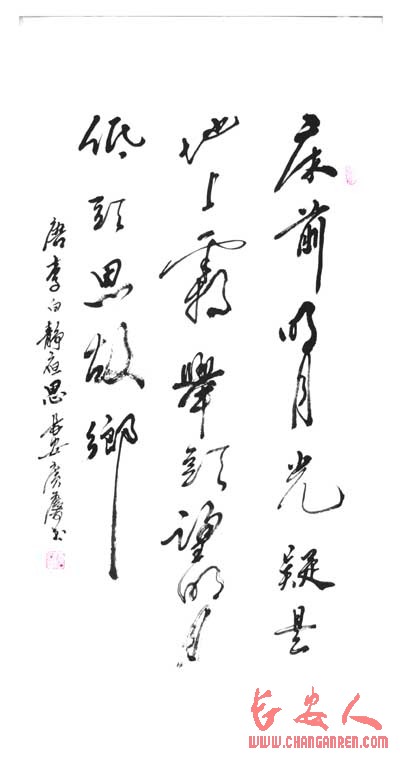 床前明月光疑是
地上霜舉頭望明月
低頭思故鄉
唐李白靜夜思長安書
长安人
www.CHANGANREN.com